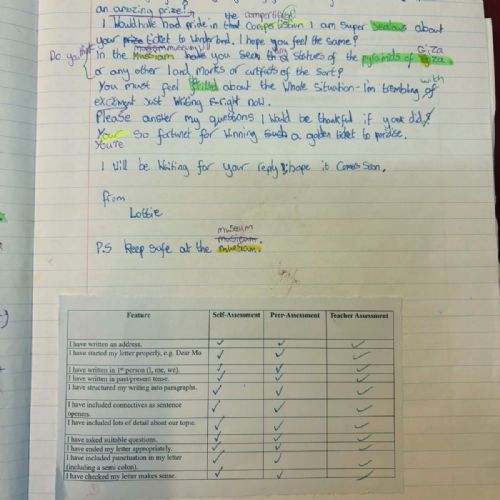 an amazing prize!
the competition
I Would have had pride in that Competission I am super Jealous about
your prize ticket to wonder land. I hope you feel the same?
Do you think
museum Giza
In the Musniam have you seen any statues of the pyramids of Giza
or any other land marks or artifacts of the sort?
with
You must feel thrilled about the Whole Situation - I'm trembling of
excitment Just Writing right now.
Please answer my questions I Would be thankful if you did!
Your So fortunet for Winning such a golden ticket to pardise.
You're
I Will be Waiting for your reply; I hope it Comes Soon.
from
Lottie
museum
P.S Keep safe at the
Feature Self-Assessment Peer-Assessment Teacher Assessment
I have written an address. ✓ ✓ ✓
I have started my letter properly, e.g. Dear Mo ✓ ✓ ✓
I have written in 1st person (I, me, we). ✓ ✓ ✓
I have written in past/present tense. ✓ ✓ ✓
I have structured my writing into paragraphs. ✓ ✓ ✓
I have included connectives as sentence
openers. ✓ ✓ ✓
I have included lots of detail about our topic. ✓ ✓ ✓
I have asked suitable questions. ✓ ✓ ✓
I have ended my letter appropriately. ✓ ✓ ✓
I have included punctuation in my letter
(including a semi colon). ✓ ✓ ✓
I have checked my letter makes sense. ✓ ✓ ✓